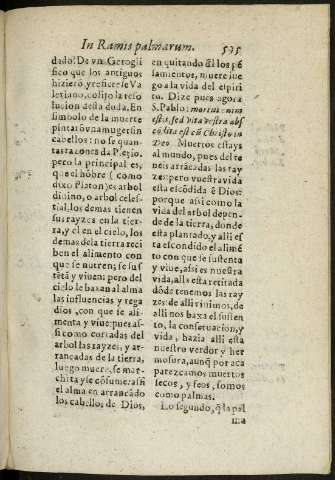 In Ramis palmarum. 535
dado? De vna Gerogli
fico que los antiguos
hizierõ y refiere se Va
leriano, colijo la reso
lucion desta duda. En
simbolo de la muerte
pintarõ vna muger sin
cabellos: no se quan-
tas razones da Pierio,
pero la principal es,
que el hõbre (como
dixo Platon) es arbol
diuino, o arbol celes-
tial, los demas tienen
sus rayzes en la tier-
ra, y el en el cielo, los
demas de la tierra reci
ben el alimento con
que se nutren, se sus
tẽtã y viuen: pero del
cielo le baxan al alma
las influencias y rega
dios, con que se ali-
menta y viue: pues as-
si como cortadas del
arbol las rayzes, y ar-
rancadas de la tierra,
luego muere, se mar-
chita y se cõsume: assi
el alma en arrancãdo
los cabellos de Dios,
en quitando q̃l los pẽ
samientos, muere lue-
go a la vida del espiri
tu. Dize pues agora
S. Pablo: mortui enim
estis, & vita vestra abs
cõdita est cũ Christo in
Deo. Muertos estays
al mundo, pues del te
neis arrãcadas las ray
zes: pero vuestra vida
esta escõdida ẽ Dios:
porque assi como la
vida del arbol depen-
de de la tierra, donde
esta plantado, y alli es
ta escondido el alimẽ
to con que se sustenta
y viue, assi es nuestra
vida, alla esta retirada
dõde tenemos las ray
zes: de alli viuimos, de
alli nos baxa el susten
to, la conseruacion, y
vida, hazia alli esta
nuestro verdor y her
mosura, aunq̃ por aca
parezcamos muertos
secos, y feos, somos
como palmas.
Lo segundo, q̃ la pal
ma